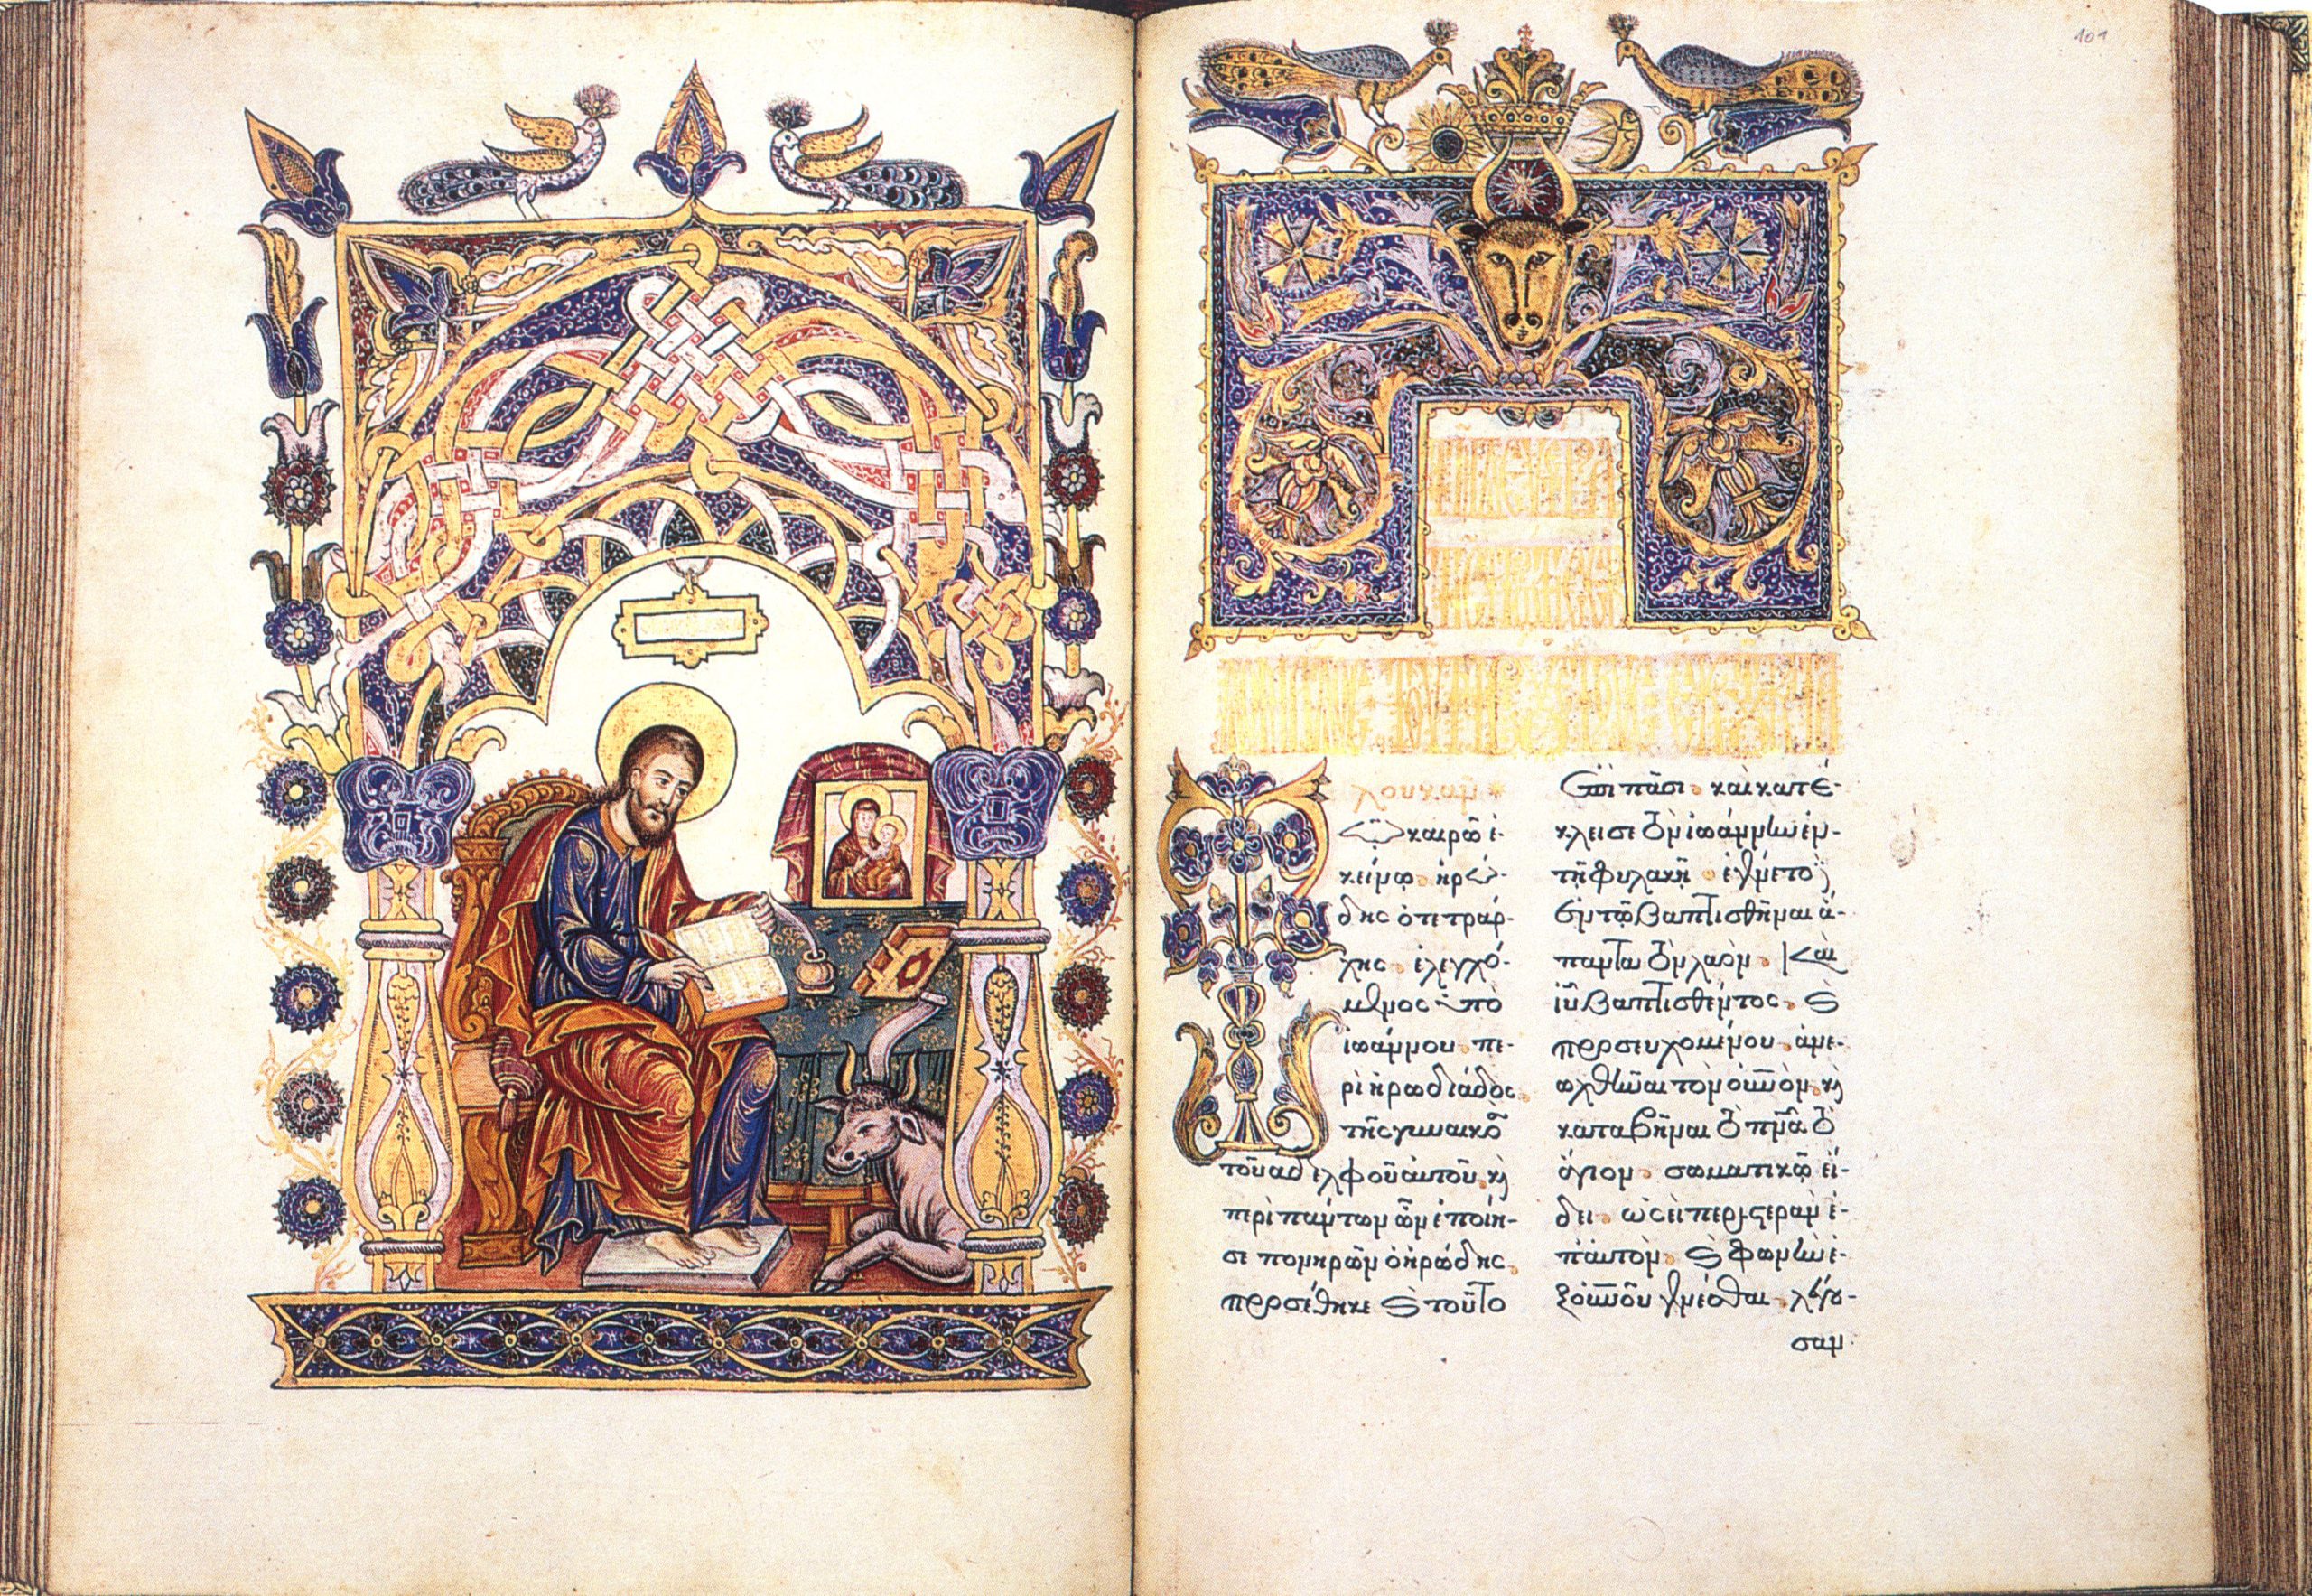 101
λουκᾶν
καιρῶ ἐ-
κείνῳ ἡρώ-
δης ὁ τετράρ-
χης ἐλεγχό-
μενος ὑπὸ
ἰωάννου πε-
ρὶ ἡρωδιάδος
τῆς γυναικὸς
τοῦ ἀδελφοῦ αὐτοῦ καὶ
περὶ πάντων ὧν ἐποίη-
σε πονηρῶν ὁ ἡρώδης
προσέθηκε καὶ τοῦτο
ἐπὶ πᾶσι. καὶ κατέ-
κλεισε τὸν ἰωάννην ἐν
τῇ φυλακῇ. ἐγένετο
ἐν τῷ βαπτισθῆναι ἅ-
παντα τὸν λαὸν. Καὶ
ἰῦ βαπτισθέντος. καὶ
προσευχομένου. ἀνε-
ωχθῆναι τὸν οὐνὸν. καὶ
καταβῆναι τὸ πνᾶ τὸ
ἅγιον. σωματικῷ εἴ-
δει. ὡσεὶ περιστερὰν ἐ-
π' αὐτὸν. καὶ φωνὴν ἐ-
ξ οὐνοῦ γενέσθαι. λέγου-
σαν.